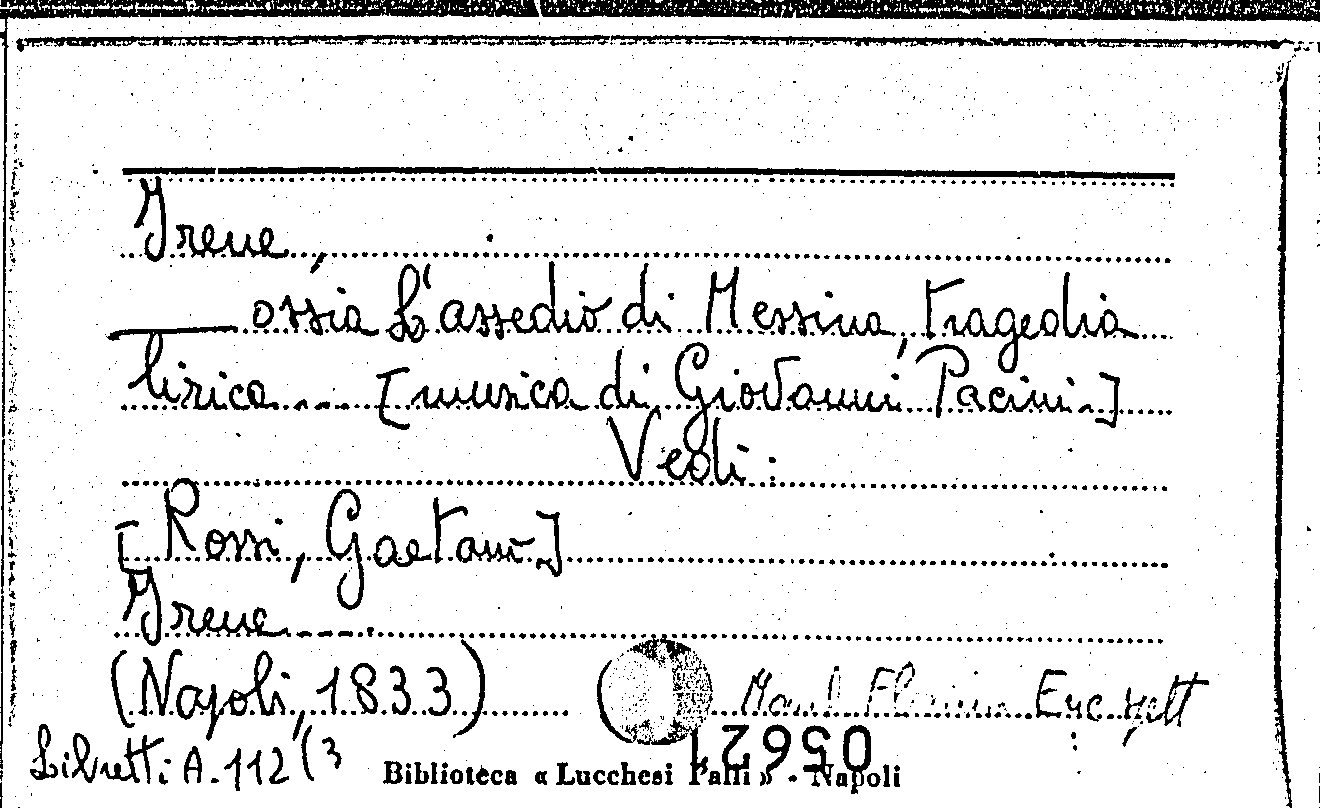 Irene,
ossia L'assedio di Messina, tragedia
lirica.... [musica di Giovanni Pacini.]
Vedi:
[Rossi, Gaetano]
Irene.....
(Napoli, 1833) (
Libretti A. 112 (3
Biblioteca « Lucchesi Palli » - Napoli
05621